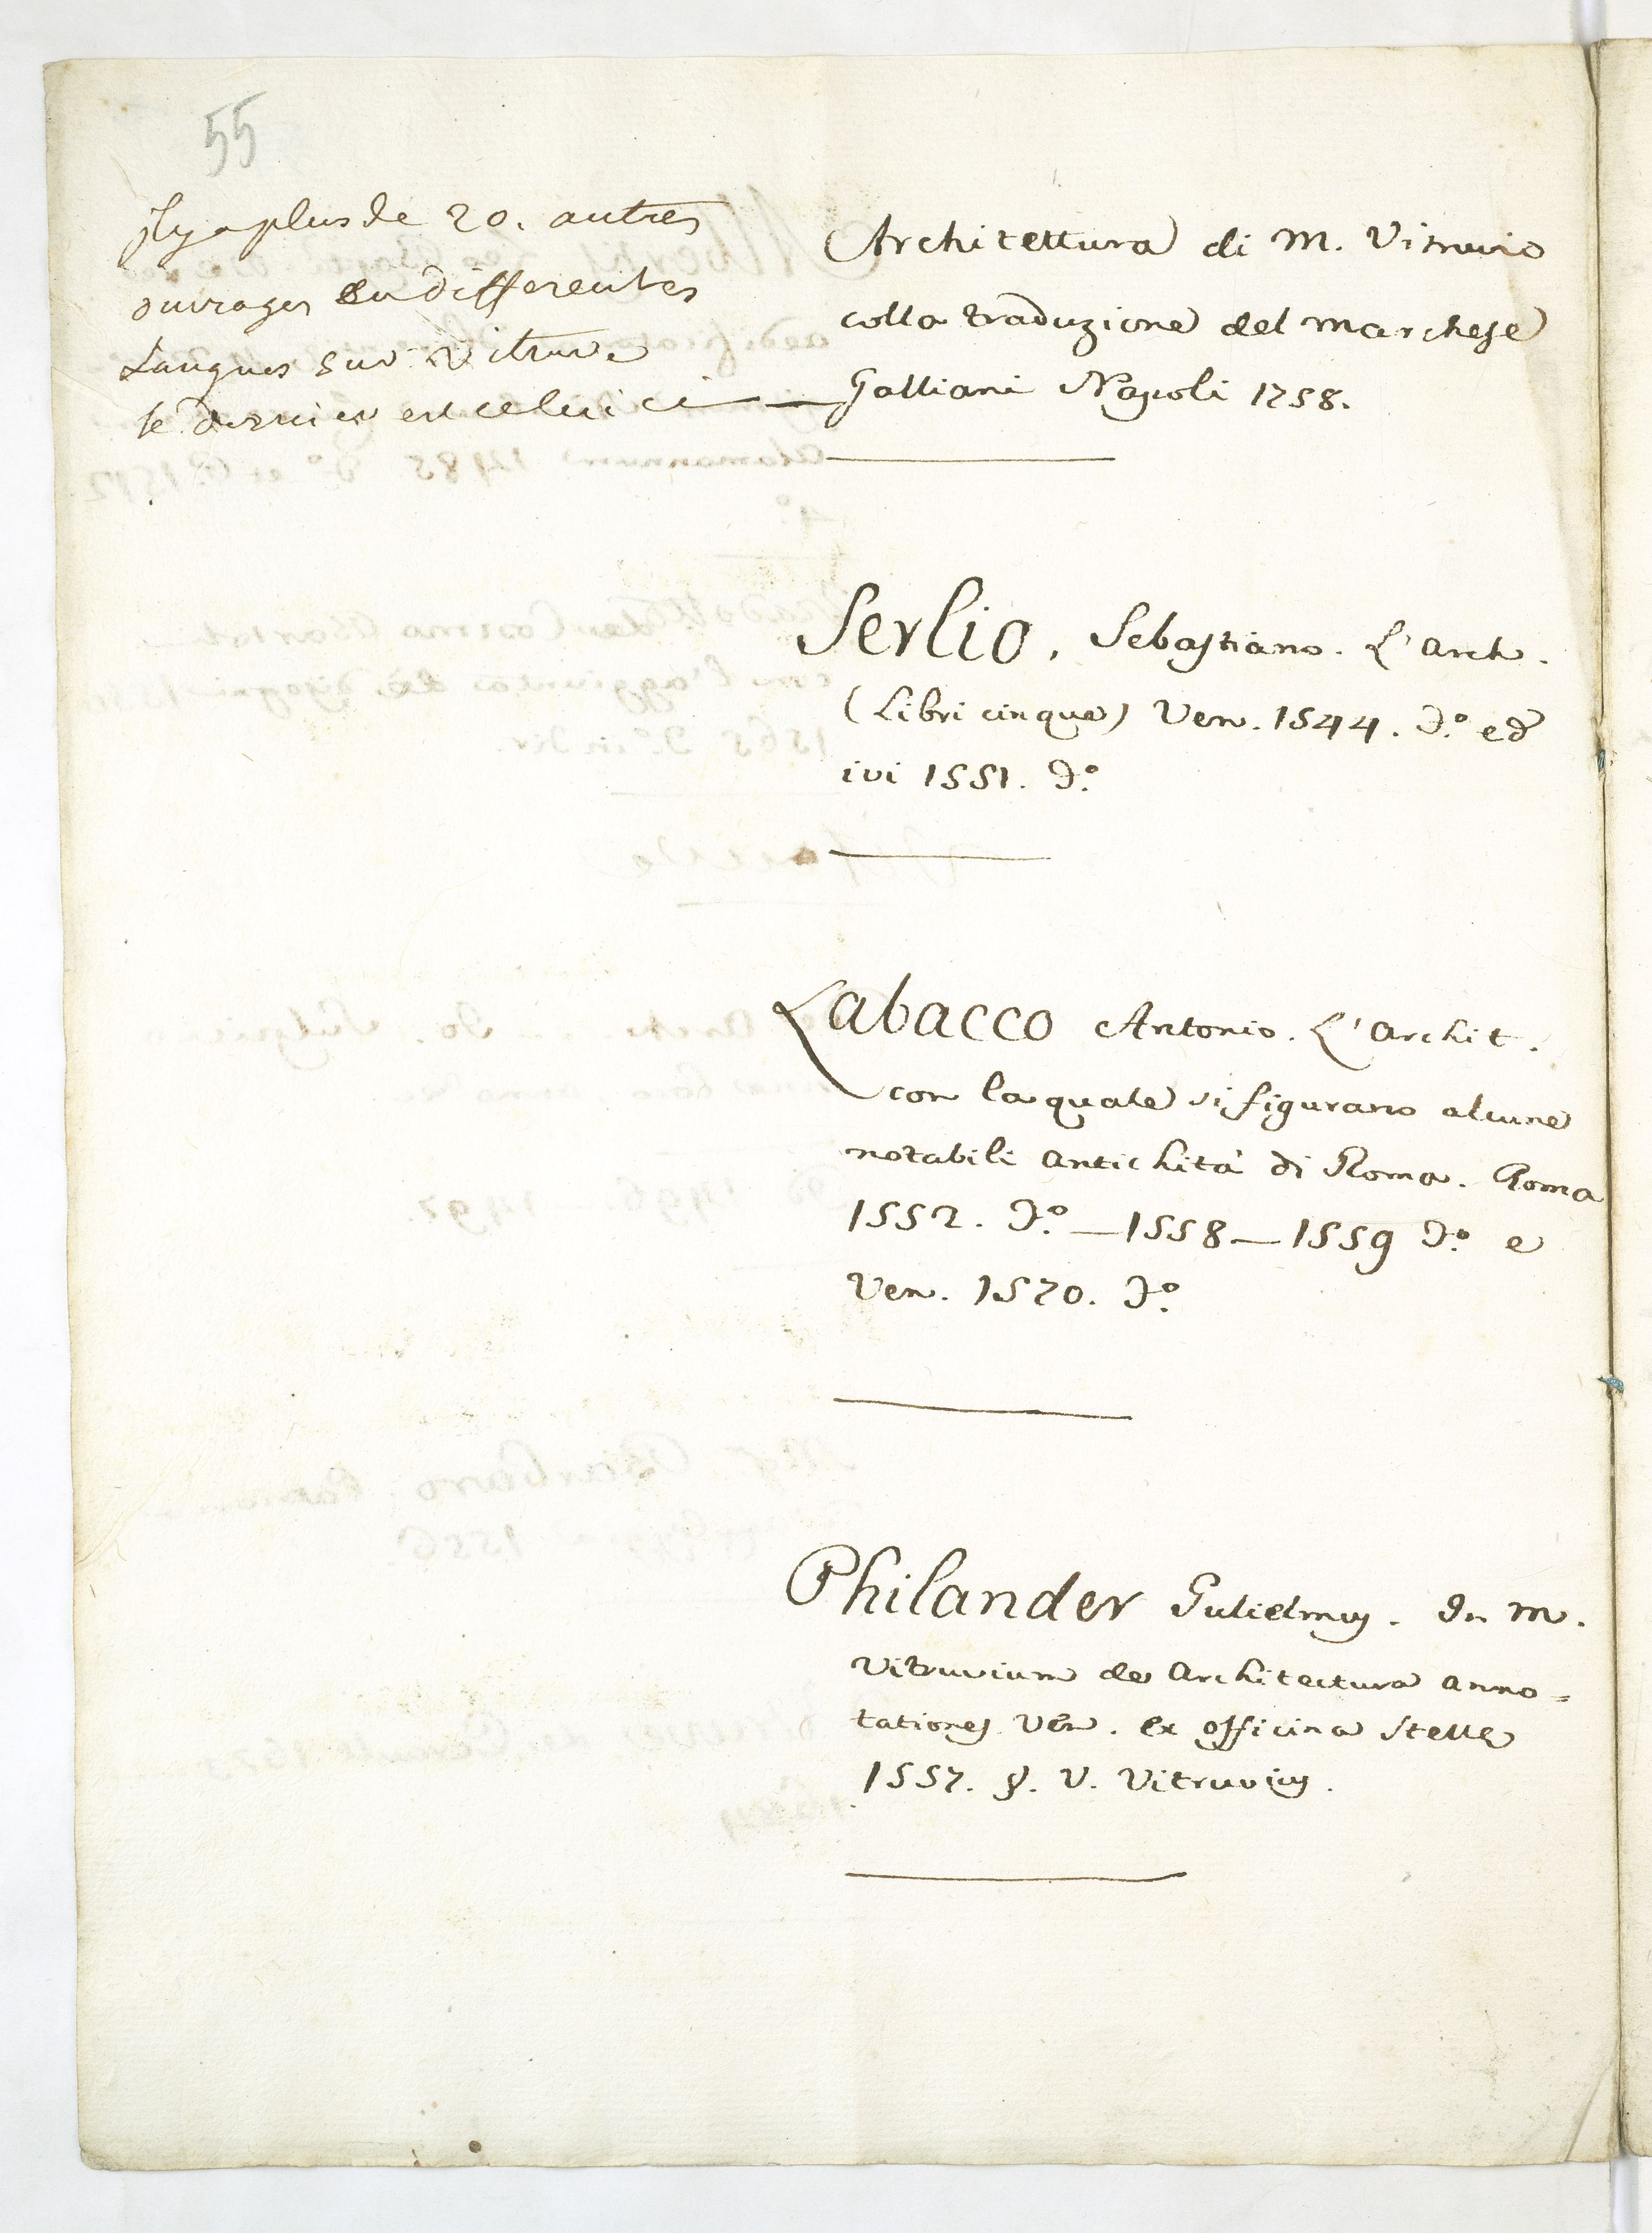 55
Il y a plus de 20. autres
ouvrages en differentes
Langues sur Vitruve
le dernier est celui ci —
Architettura di M. Vitruvio
colla traduzione del Marchese
Galliani Napoli 1758.
Serlio, Sebastiano. L'Arch.
(Libri cinque) Ven. 1544. F.º ed
ivi 1551. F.º
Labacco Antonio. L'Archit.
con la quale si figurano alcune
notabili antichità di Roma. Roma
1552. F.º — 1558 — 1559 F.º e
Ven. 1570. F.º
Philander Gulielmus. In M.
Vitruvium de Architectura anno=
tationes Ven. ex officina Stelle
1557. 8. V. Vitruvius.